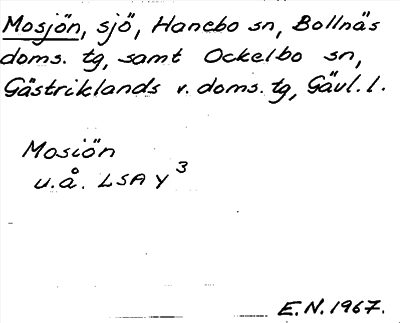 Mosjön, sjö, Hanebo sn, Bollnäs
doms. tg, samt Ockelbo sn,
Gästriklands v. doms. tg, Gävl. l.
Mosiön
u.å. LSA Y³
E.N. 1967.